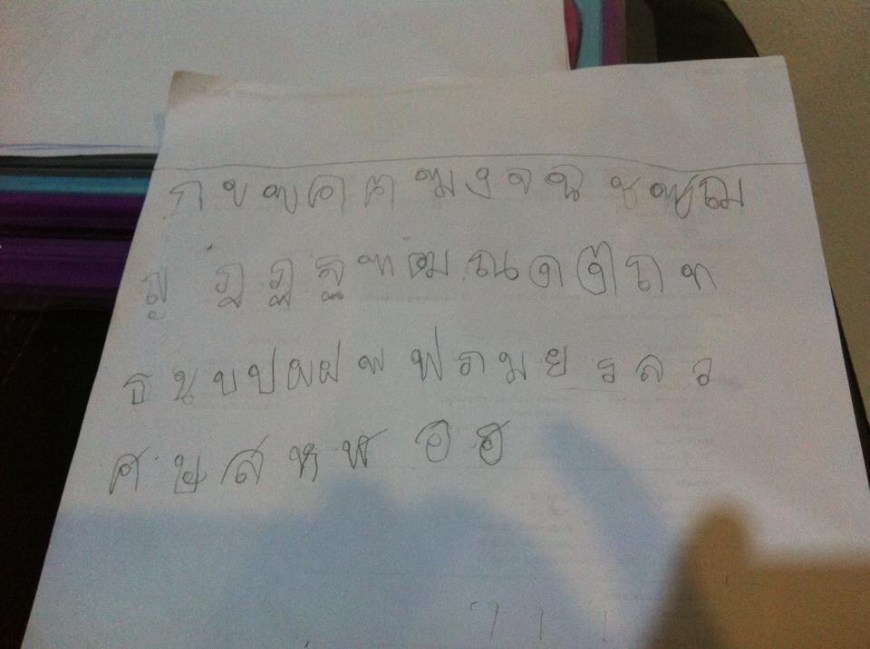 ก ข ฃ ค ฅ ฆ ง จ ฉ ช ซ ฌ
ญ ฎ ฏ ฐ ฑ ฒ ณ ด ต ถ ท
ธ น บ ป ผ ฝ พ ฟ ภ ม ย ร ล ว
ศ ษ ส ห ฬ อ ฮ